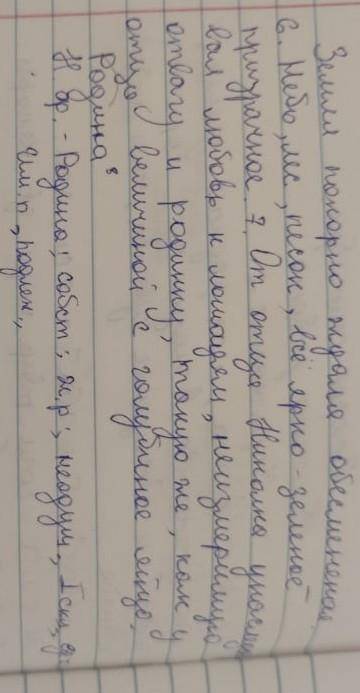 Земля покорно ждала обсеменения
6. Небо, лес, песок, всё ярко-зелёное
призрачное. 7. От отца Никалка унаследо
вал любовь к лошадям, неизмеримую
отвагу и родинку, такую же, как у
отца, величиной с голубиное яйцо.
Родина³
Н. ф. - Родина; собст; ж.р; неодуш, I скл, ед.
Им. п, подлеж.,